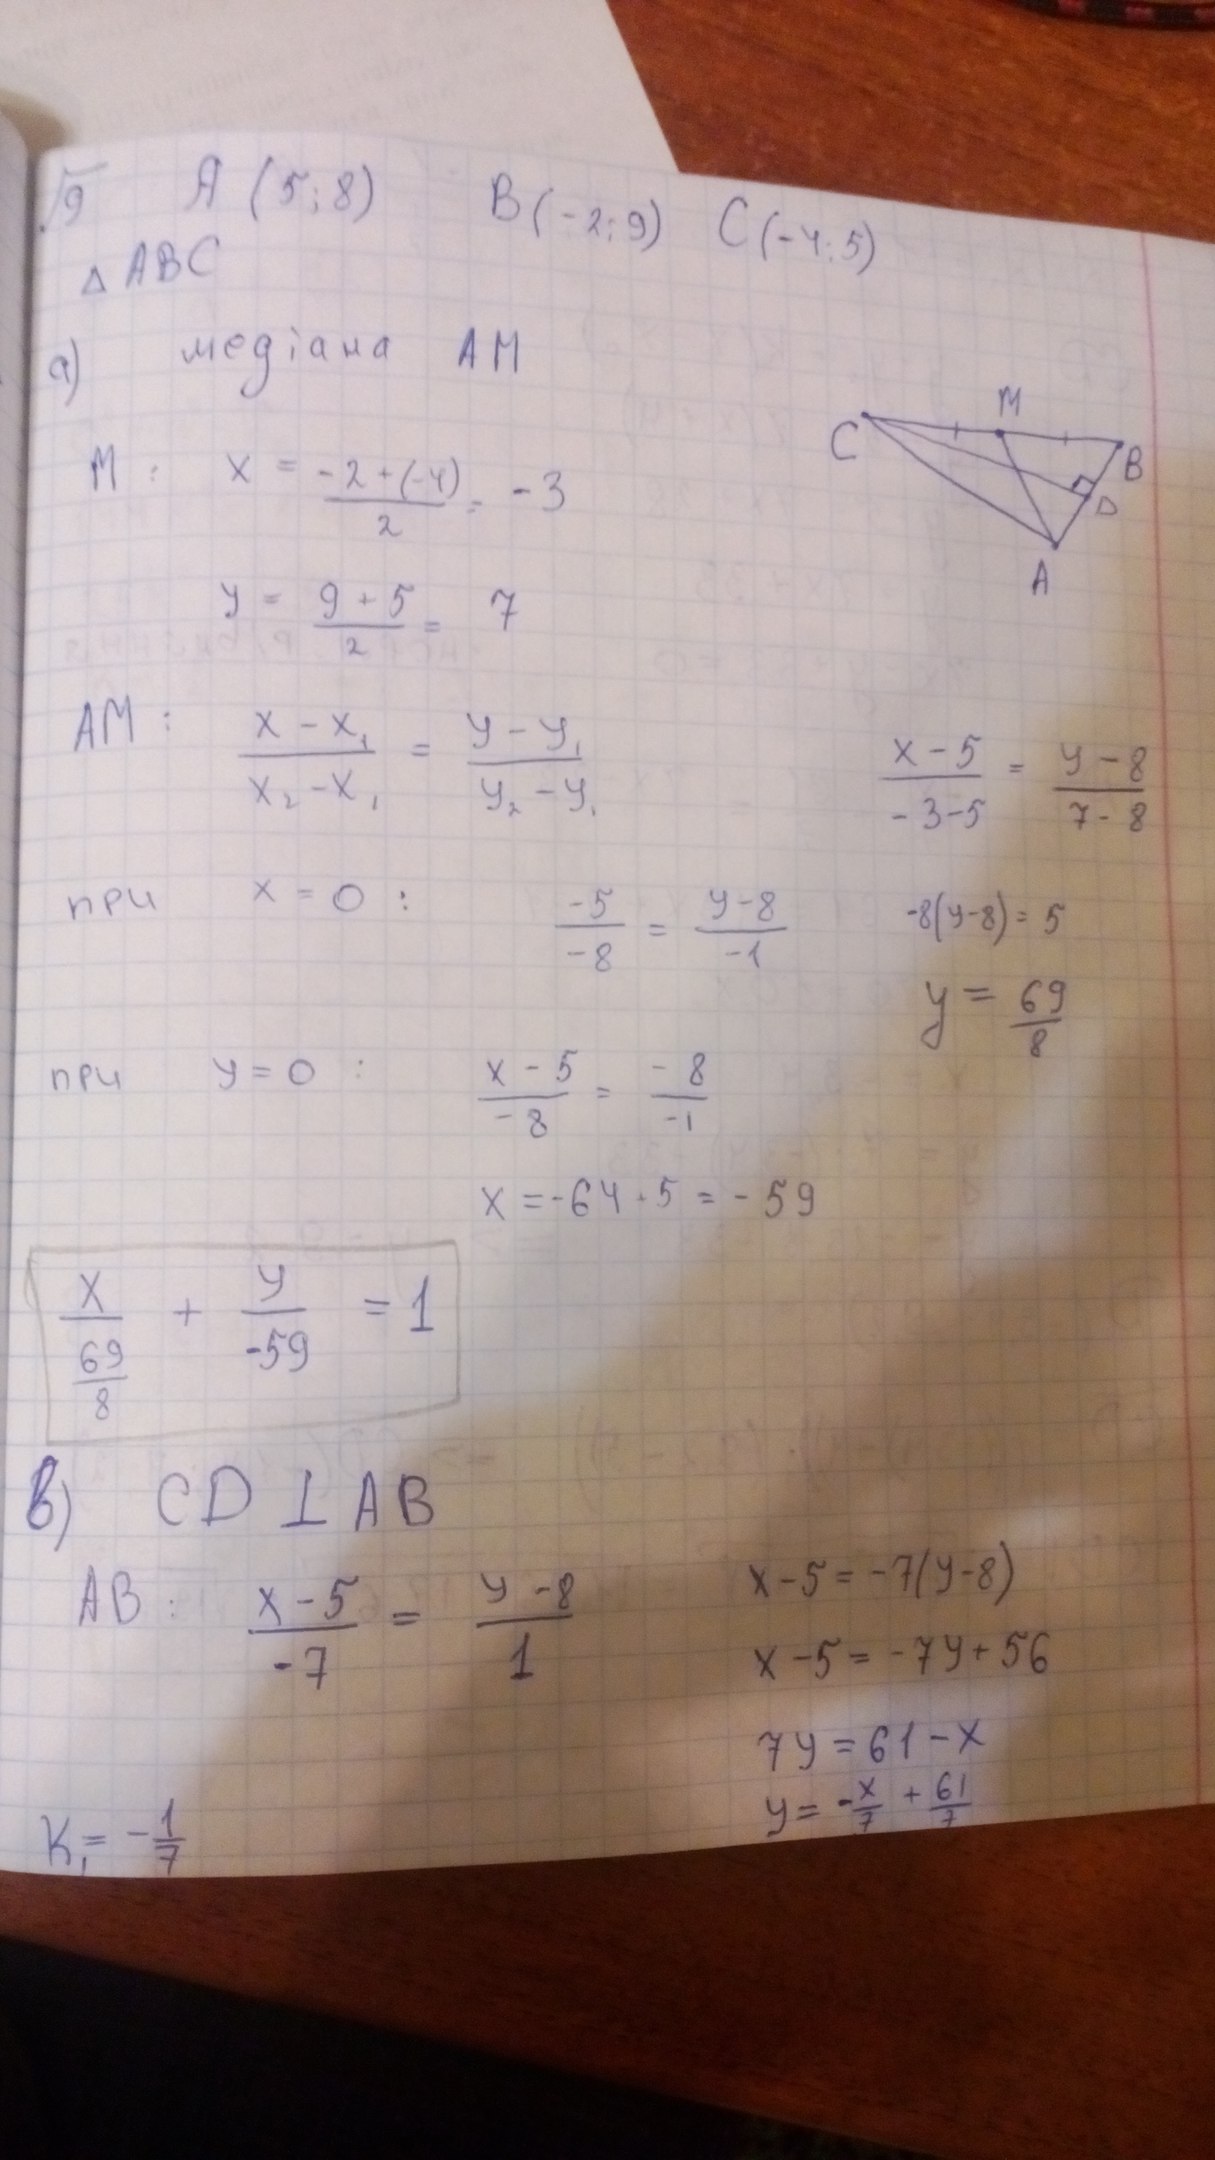 √9 A (5;8) B(-2;9) C(-4;5)
△ ABC
а) медіана AM
C M B D A
M: x = (-2+(-4))/2 = -3
y = (9+5)/2 = 7
AM: (x-x₁)/(x₂-x₁) = (y-y₁)/(y₂-y₁) (x-5)/(-3-5) = (y-8)/(7-8)
при x=0: -5/-8 = (y-8)/-1 -8(y-8)=5
y = 69/8
при y=0: (x-5)/-8 = -8/-1
x = -64+5 = -59
x/(69/8) + y/-59 = 1
в) CD ⊥ AB
AB: (x-5)/-7 = (y-8)/1 x-5=-7(y-8)
x-5=-7y+56
7y=61-x
K₁=-1/7 y=-x/7+61/7